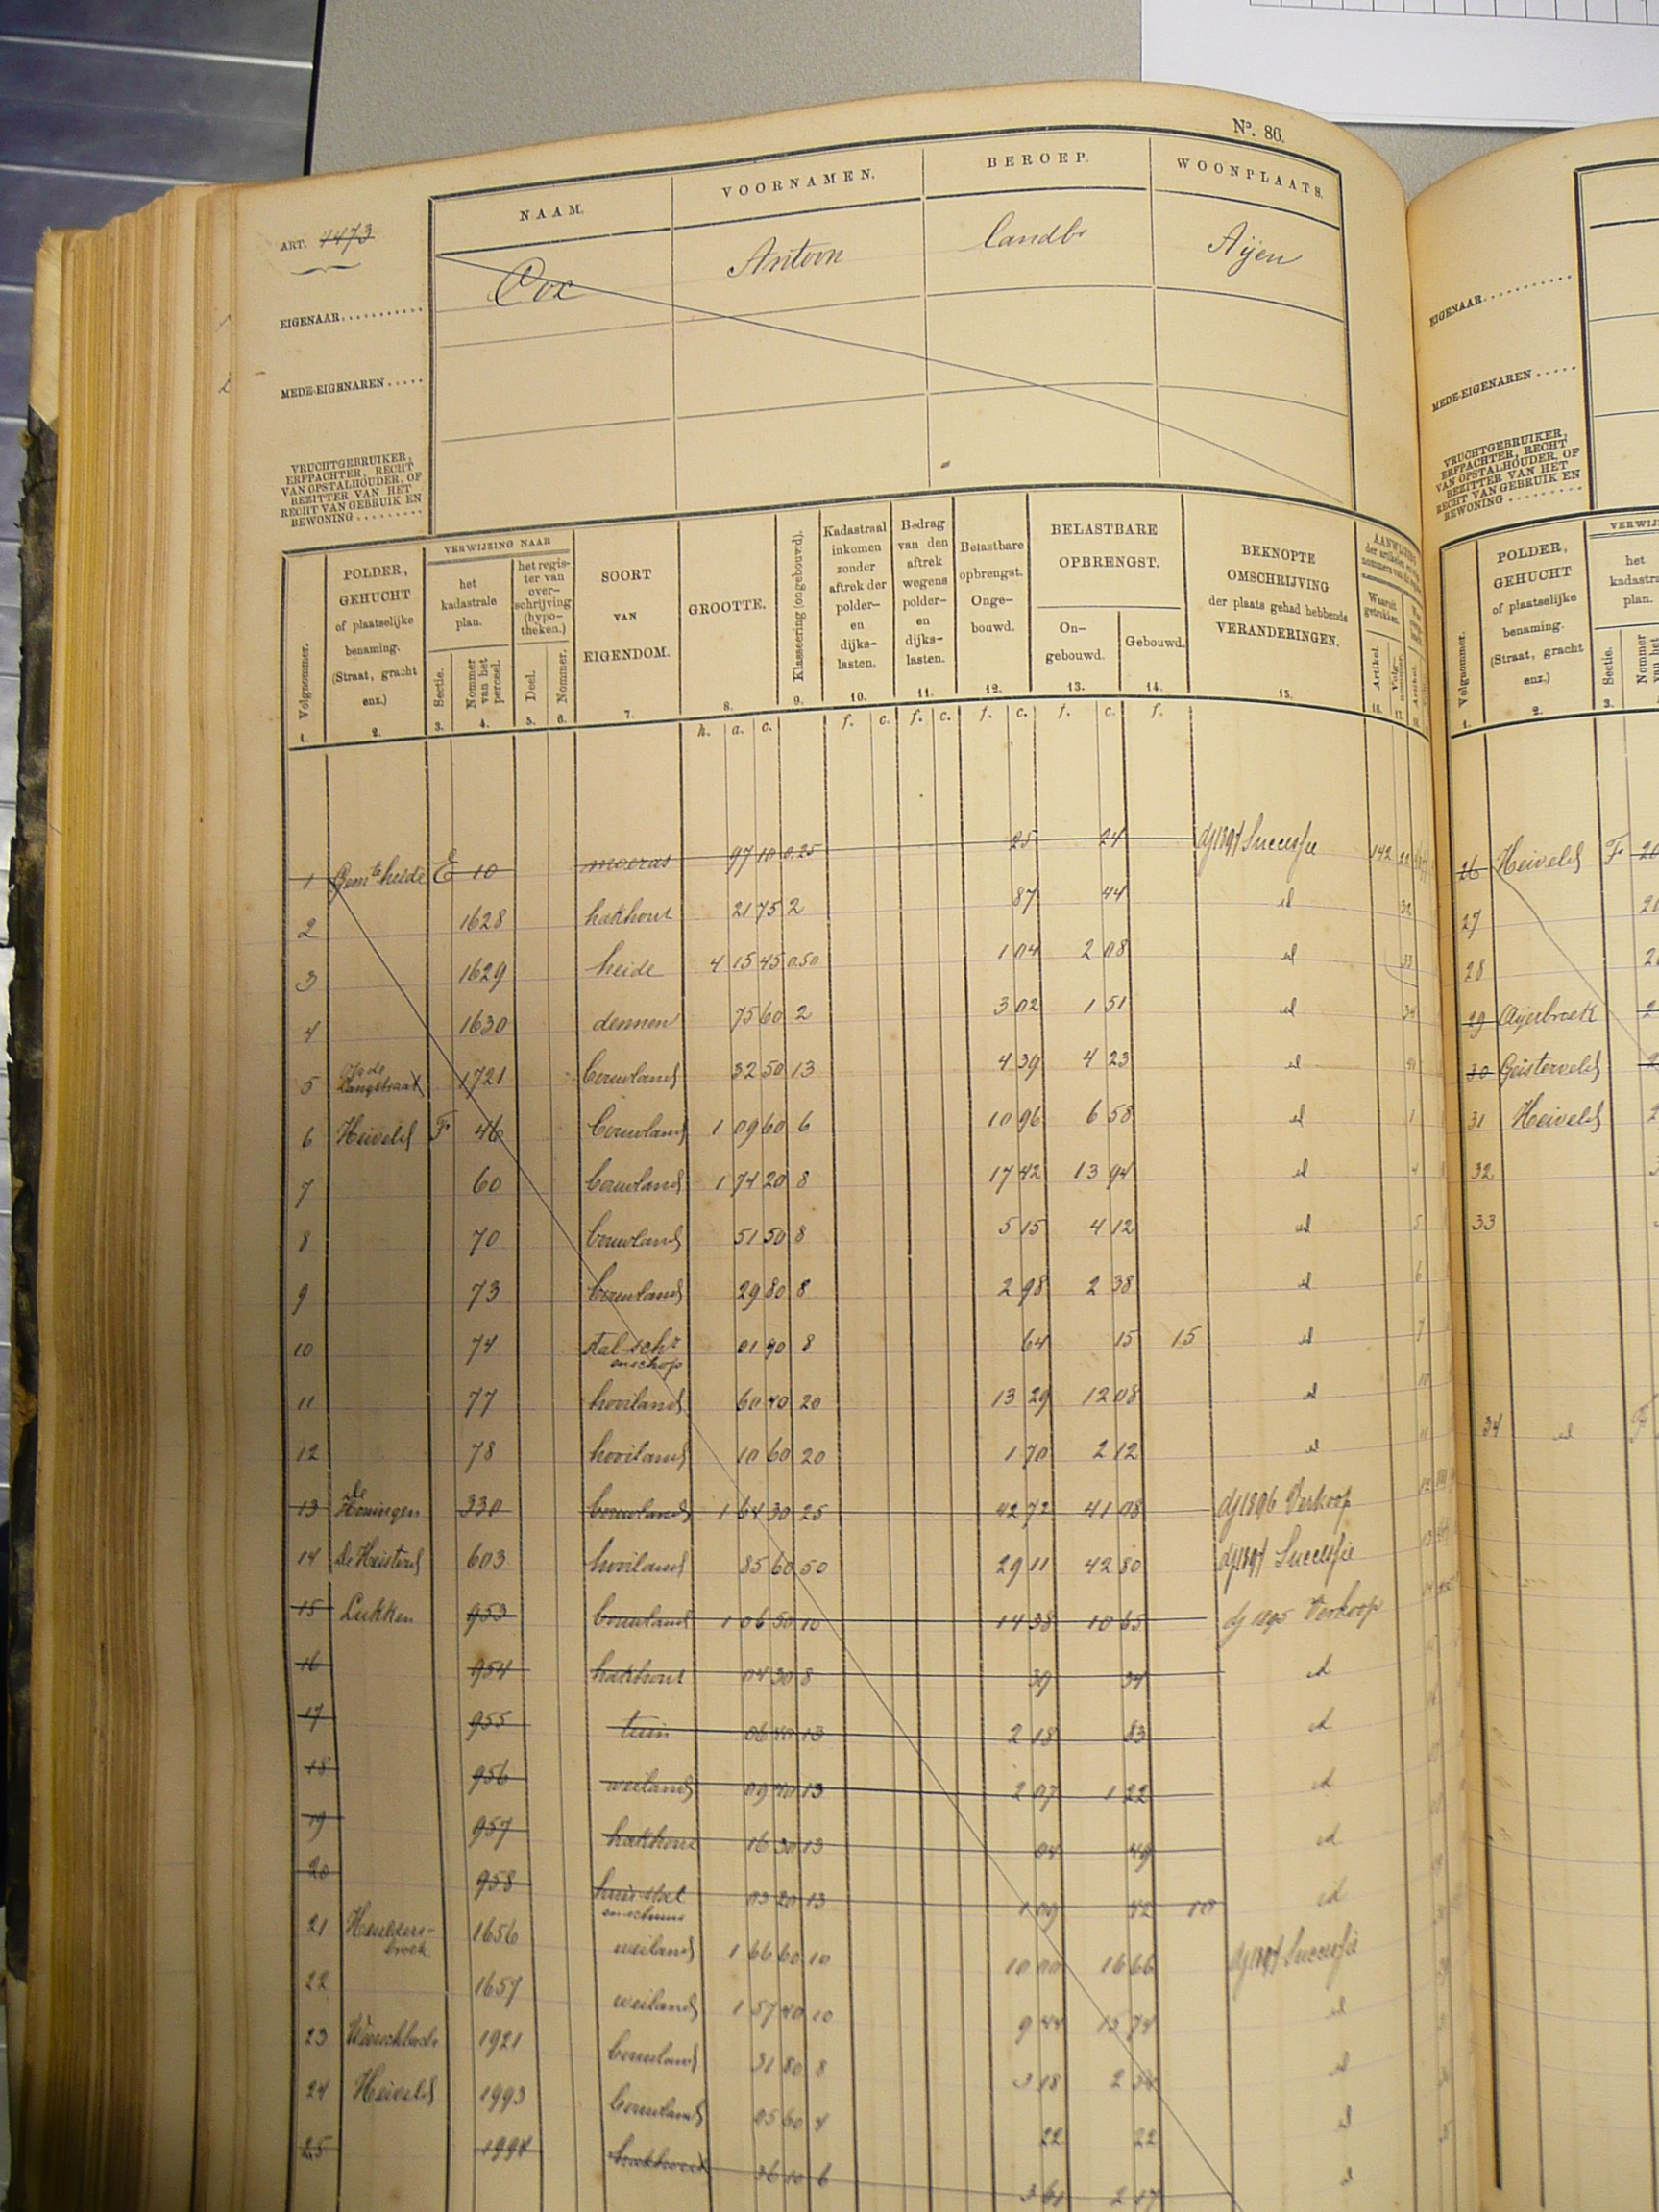 Nº. 86.
ART. 1473
NAAM. VOORNAMEN. BEROEP. WOONPLAATS.
EIGENAAR........... Antoon landbr Aijen
MEDE-EIGENAREN.....
VRUCHTGEBRUIKER,
ERFPACHTER, RECHT
VAN OPSTALHOUDER, OF
BEZITTER VAN HET
RECHT VAN GEBRUIK EN
BEWONING.........
Volgnummer.
1.
POLDER,
GEHUCHT
of plaatselijke
benaming.
(Straat, gracht
enz.)
2.
VERWIJZING NAAR
het
kadastrale
plan.
Sectie.
3.
Nommer
van het
perceel.
4.
het regis-
ter van
over-
schrijving
(hypo-
theken.)
Deel.
5.
Nommer.
6.
SOORT
VAN
EIGENDOM.
7.
GROOTTE.
8.
Klasseering (ongebouwd).
9.
Kadastraal
inkomen
zonder
aftrek der
polder-
en
dijks-
lasten.
10.
Bedrag
van den
aftrek
wegens
polder-
en
dijks-
lasten.
11.
Belastbare
opbrengst.
Onge-
bouwd.
12.
BELASTBARE
OPBRENGST.
On-
gebouwd.
13.
Gebouwd.
14.
BEKNOPTE
OMSCHRIJVING
der plaats gehad hebbende
VERANDERINGEN.
15.
Waaruit
getrokken.
Artikel.
16.
Volg-
nommer.
17.
h. a. c. f. c. f. c. f. c. f. c. f.
1 Gemte heide E 10 moeras 97 10 0.25 25 24 dj 1897 Successie 142 22
2 1628 hakhout 21 75 2 87 44 id 32
3 1629 heide 4 15 45 0.50 1 04 2 08 id 33
4 1630 dennen 75 60 2 3 02 1 51 id 34
5 Langstraat 1721 bouwland 32 50 13 4 39 4 23 id
6 Heiveld F 46 bouwland 1 09 60 6 10 96 6 58 id 1
7 60 bouwland 1 74 20 8 17 42 13 94 id 4
8 70 bouwland 51 50 8 5 15 4 12 id 5
9 73 bouwland 29 80 8 2 98 2 38 id 6
10 74 stal schr en schop 01 90 8 64 15 15 id 7
11 77 hooiland 60 40 20 13 29 12 08 id 10
12 78 hooiland 10 60 20 1 70 2 12 id 11
13 De Honingen 330 bouwland 1 64 30 25 42 72 41 08 dj 1896 Verkoop
14 De Heisterd 603 hooiland 85 60 50 29 11 42 80 dj 1897 Successie
15 Lukken 953 bouwland 1 06 50 10 14 38 10 65 dj 1895 Verkoop
16 954 hakhout 04 30 8 39 34 id
17 955 tuin 06 40 13 2 18 83 id
18 956 weiland 09 40 13 2 07 1 22 id
19 957 hakhout 16 30 13 49 id
20 958 huis stal en schuur 03 20 13 1 09 42 id
21 1656 weiland 1 66 60 10 10 00 16 66 dj 1897 Successie
22 1657 weiland 1 57 40 10 9 44 15 74 id
23 1921 bouwland 31 80 8 3 18 id
24 Heiveld 1993 bouwland 05 60 4 22 22 id
25 1994 hakhout 36 10 6 3 61 2 17 id
EIGENAAR...........
MEDE-EIGENAREN.....
VRUCHTGEBRUIKER,
ERFPACHTER, RECHT
VAN OPSTALHOUDER, OF
BEZITTER VAN HET
RECHT VAN GEBRUIK EN
BEWONING.........
Volgnummer.
1.
POLDER,
GEHUCHT
of plaatselijke
benaming.
(Straat, gracht
enz.)
2.
Sectie.
3.
Nommer
26 Heiveld F
27
28
29 Aijerbroek
30 Geisterveld
31 Heiveld
32
33
34 id F